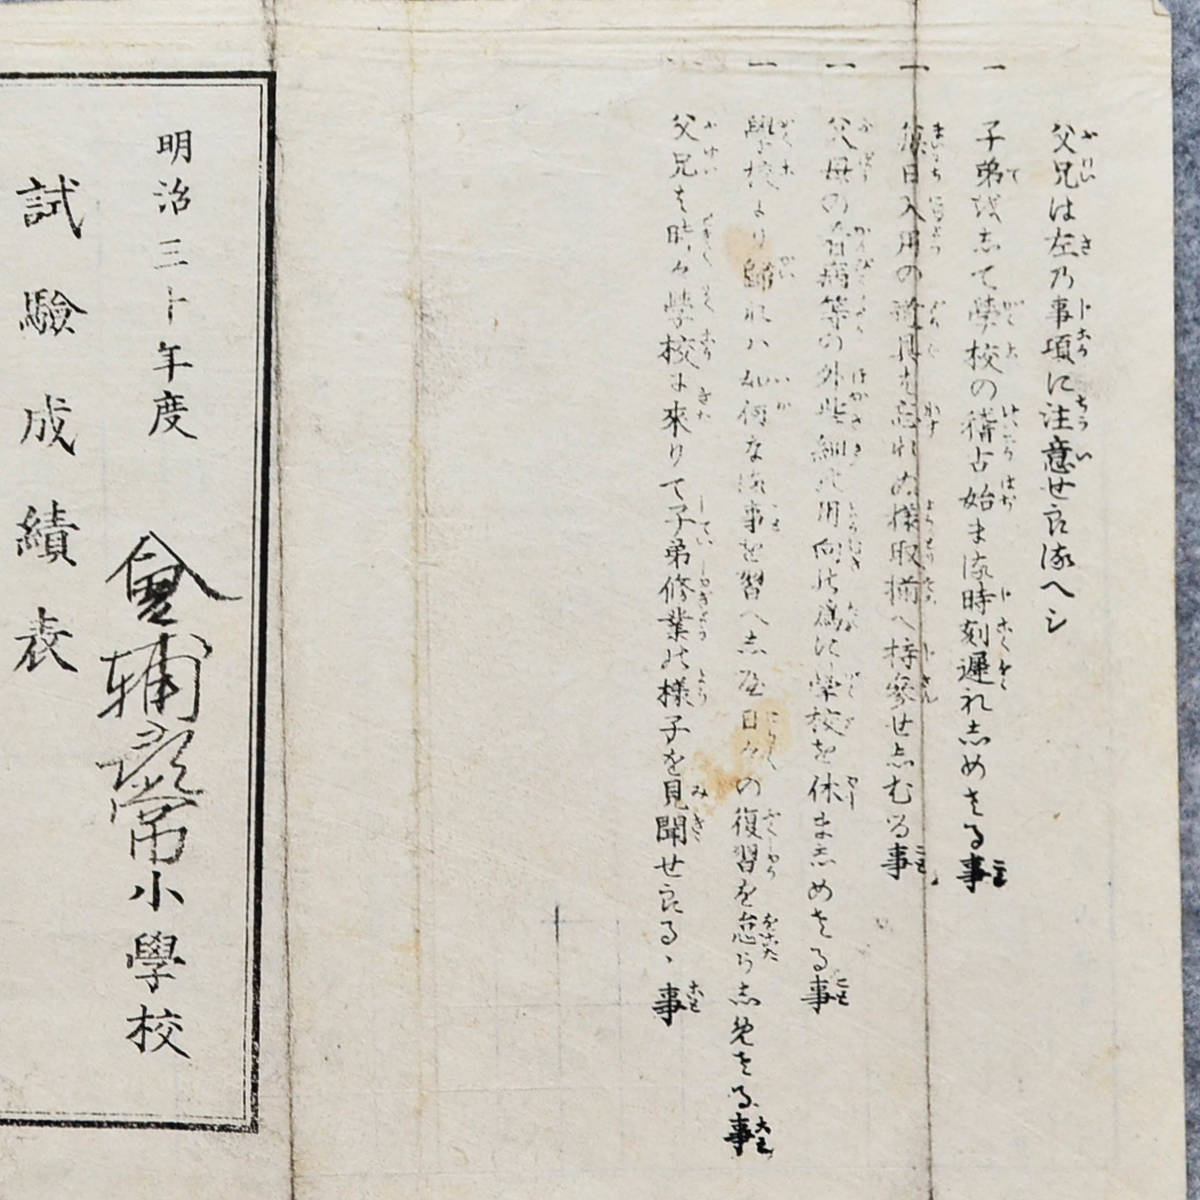 父兄は左乃事項に注意せらるへシ
一 子弟をして學校の稽古始まる時刻遲れしめざる事
一 毎日入用の道具を忘れぬ樣取揃へ持參せしむる事
一 父母の看病等の外些細の用向の爲に學校を休ましめざる事
一 學校より歸れハ如何なる事を習へしや日々の復習を怠らしめざる事
一 父兄は時々學校に來りて子弟修業の樣子を見聞せらるゝ事
明治三十年度 會輔尋常小學校
試驗成績表